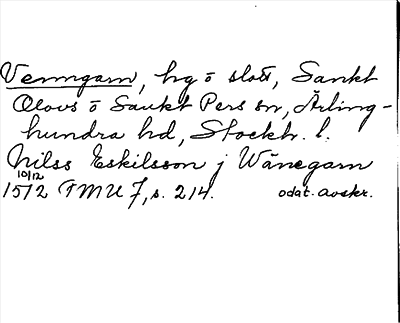 Venngarn, hg o slott, Sankt
Olovs o Sankt Pers sn, Ärling-
hundra hd, Stockh. l.
Nilss Eskilsson j Wänegarn
10/12
1512 FMU 7, s. 214. odat. avskr.